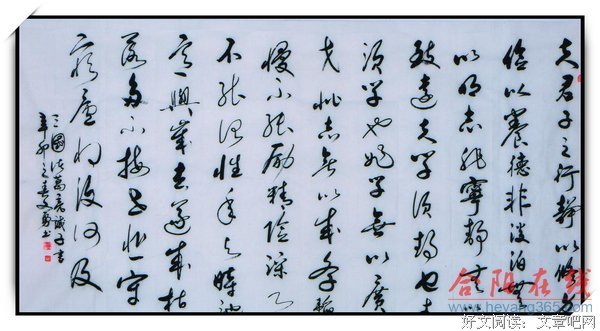 夫君子之行静以修身
俭以養德非淡泊無
以明志非寧静無以
致遠夫学須静也才
須学也非学無以廣
才非志無以成学
慢不能励精险躁
不能治性年与時馳
意與歲去遂成枯
落多不接世悲守
窮廬将復何及
三國诸葛亮诫子書
辛卯之春文勇書
合阳在线
www.heyang365.com
好文阅读：文章吧网